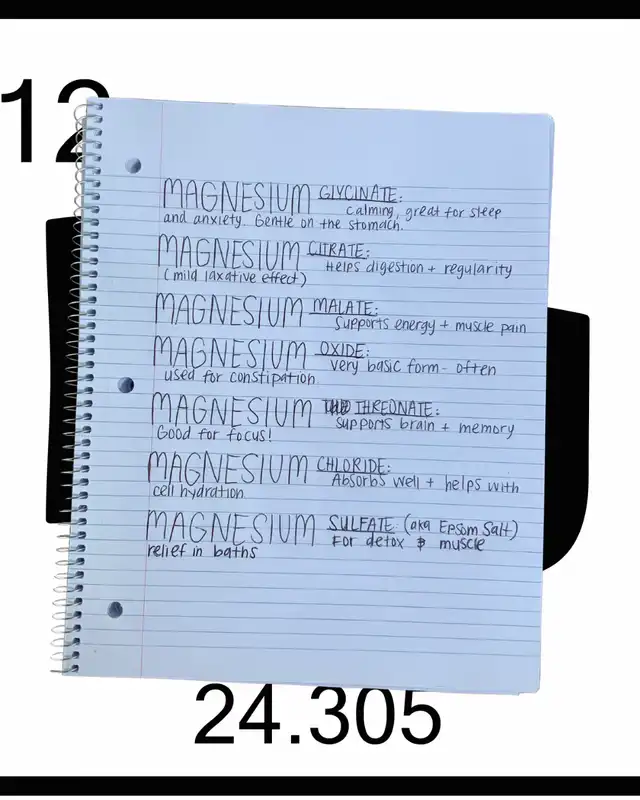 12
MAGNESIUM GLYCINATE:
calming, great for sleep
and anxiety. Gentle on the stomach.
MAGNESIUM CITRATE:
Helps digestion + regularity
(mild laxative effect)
MAGNESIUM MALATE:
Supports energy + muscle pain
MAGNESIUM OXIDE:
very basic form - often
used for constipation
MAGNESIUM THREONATE:
supports brain + memory
Good for focus!
MAGNESIUM CHLORIDE:
Absorbs well + helps with
cell hydration
MAGNESIUM SULFATE: (aka Epsom Salt)
For detox & muscle
relief in baths
24.305